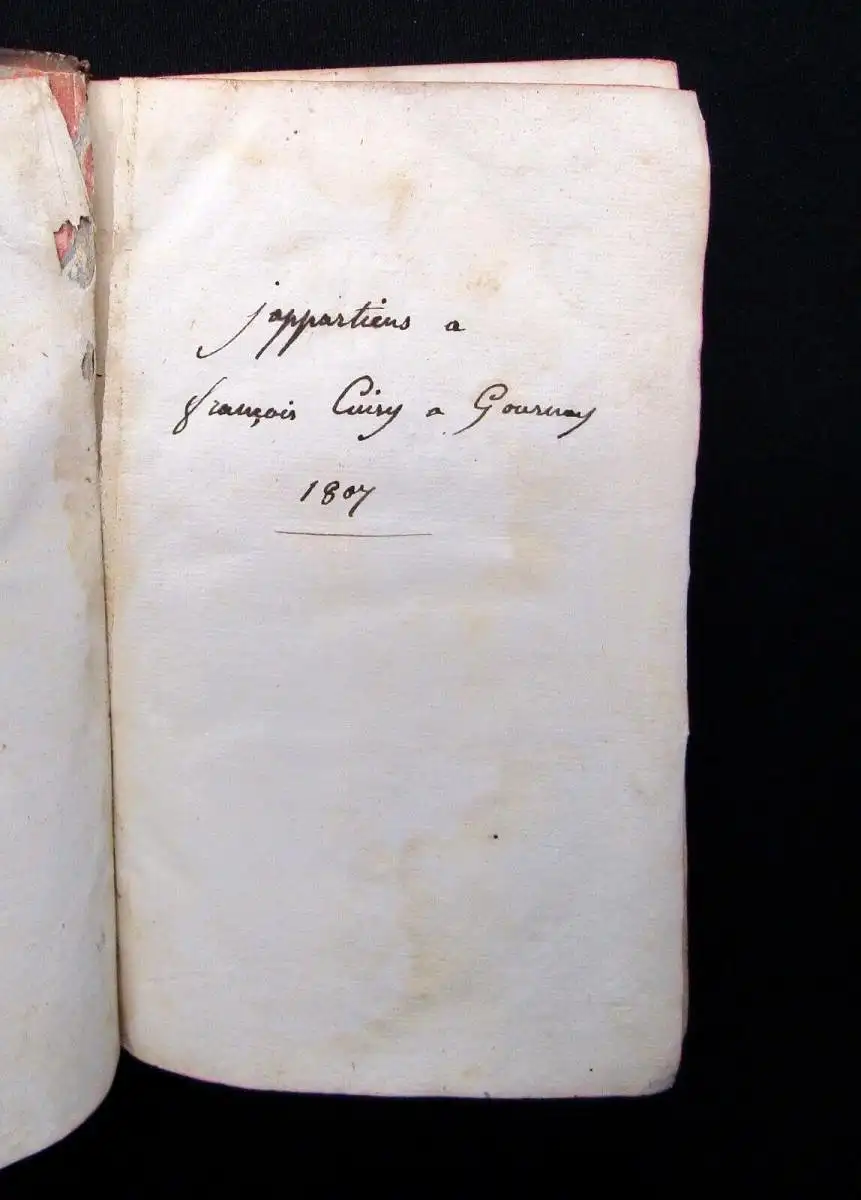 j'appartiens a
françois Cuiry a Gournay
1807